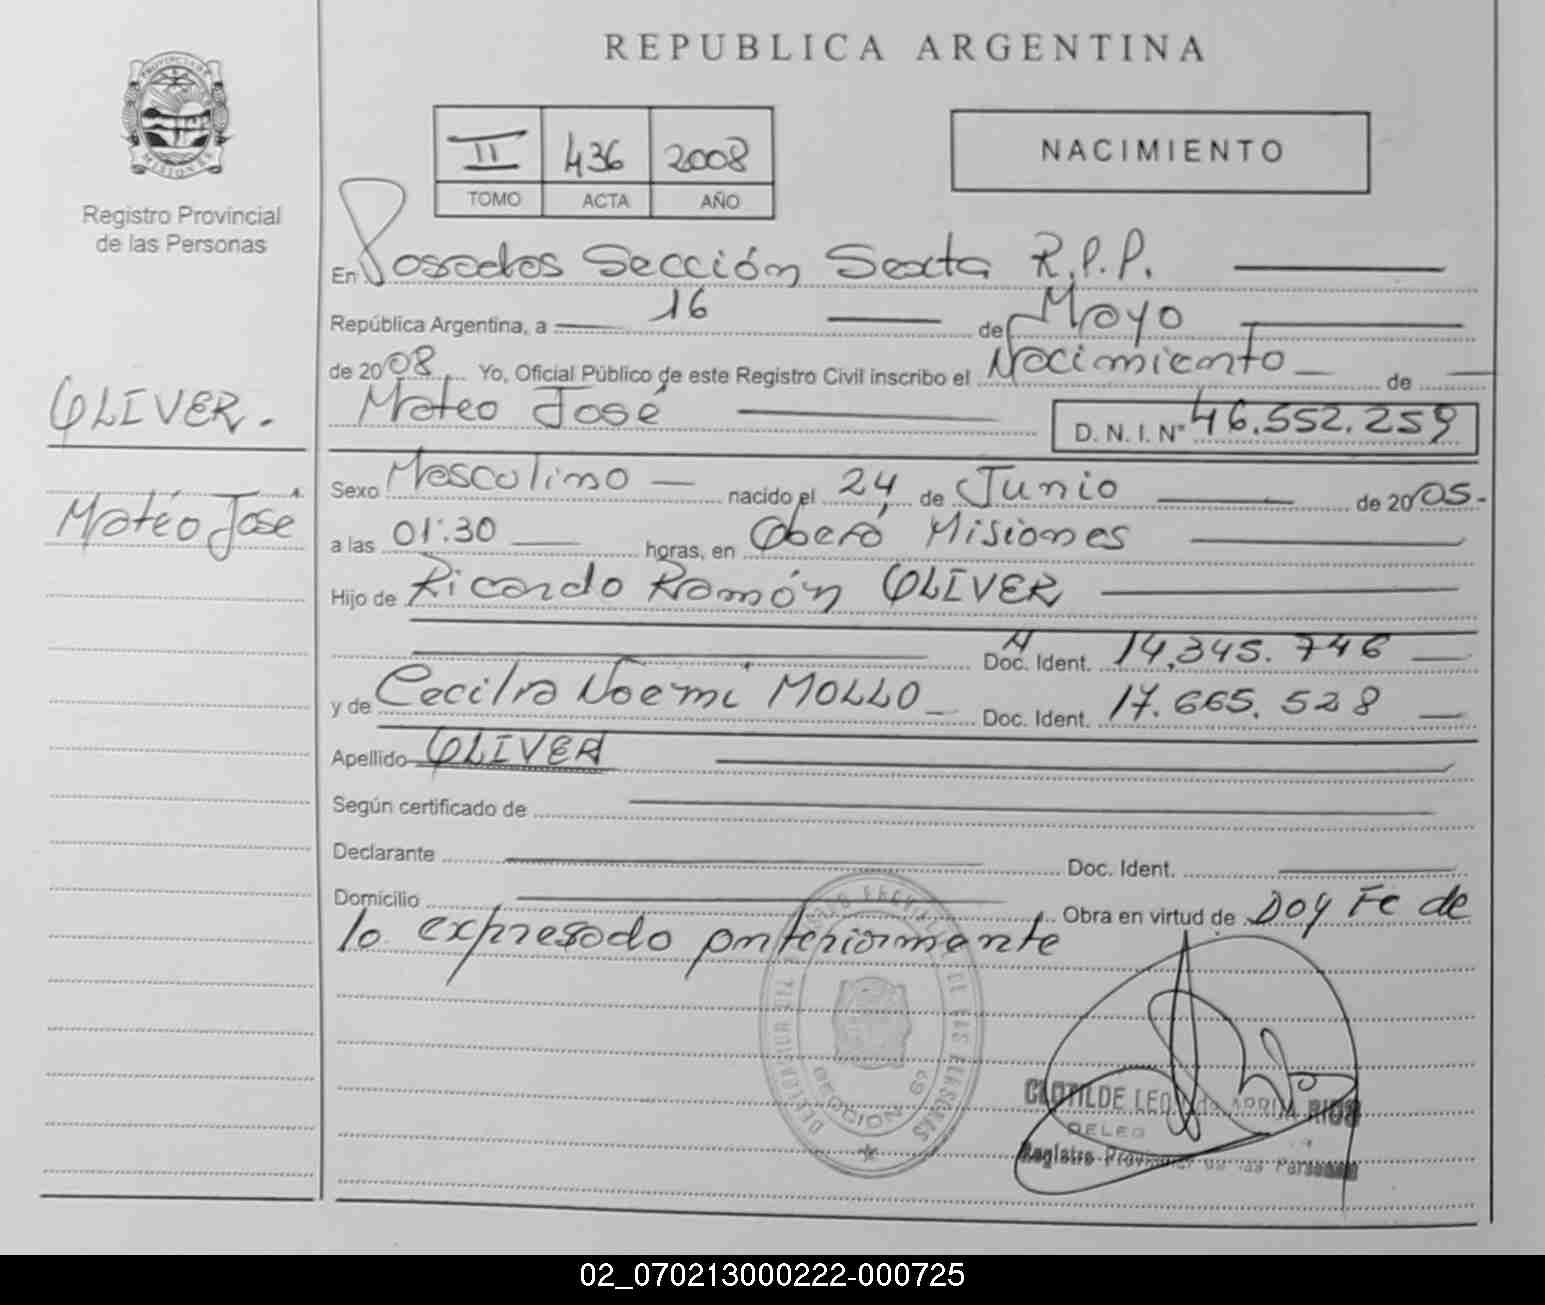 REPUBLICA ARGENTINA
PROVINCIA DE
MISIONES
Registro Provincial
de las Personas
II 436 2008
TOMO ACTA AÑO
NACIMIENTO
En Posadas Sección Sexta R.P.P.
República Argentina, a 16 de Mayo
de 2008. Yo, Oficial Público de este Registro Civil inscribo el Nacimiento de
Mateo José D. N. I. Nº 46.552.259
OLIVER.
Mateo José
Sexo Masculino nacido el 24 de Junio de 2005.
a las 01:30 horas, en Oberá Misiones
Hijo de Ricardo Ramón OLIVER
Doc. Ident. 14.345.746
y de Cecilia Noemi MOLLO Doc. Ident. 17.665.528
Apellido OLIVER
Según certificado de
Declarante Doc. Ident.
Domicilio Obra en virtud de Doy Fe de
lo expresado anteriormente
SECCION 6ª
CLOTILDE RIOS
Registro Provincial de las Personas
02_070213000222-000725